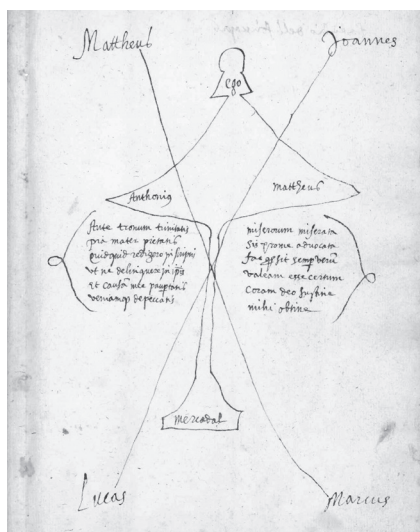 Mattheus
Joannes
ego
Anthonius
mattheus
Ante tronum trinitatis
pia mater pietatis
Quidquid redigero in
ut ne delinquere in
et causa mee
veniamq de peccatis
miserorum miserata
sis pro me advocata
fac qs sit semp verum
valeam esse certum
Coram deo sustine
mihi obtine
mercadal
Lucas
Marcus